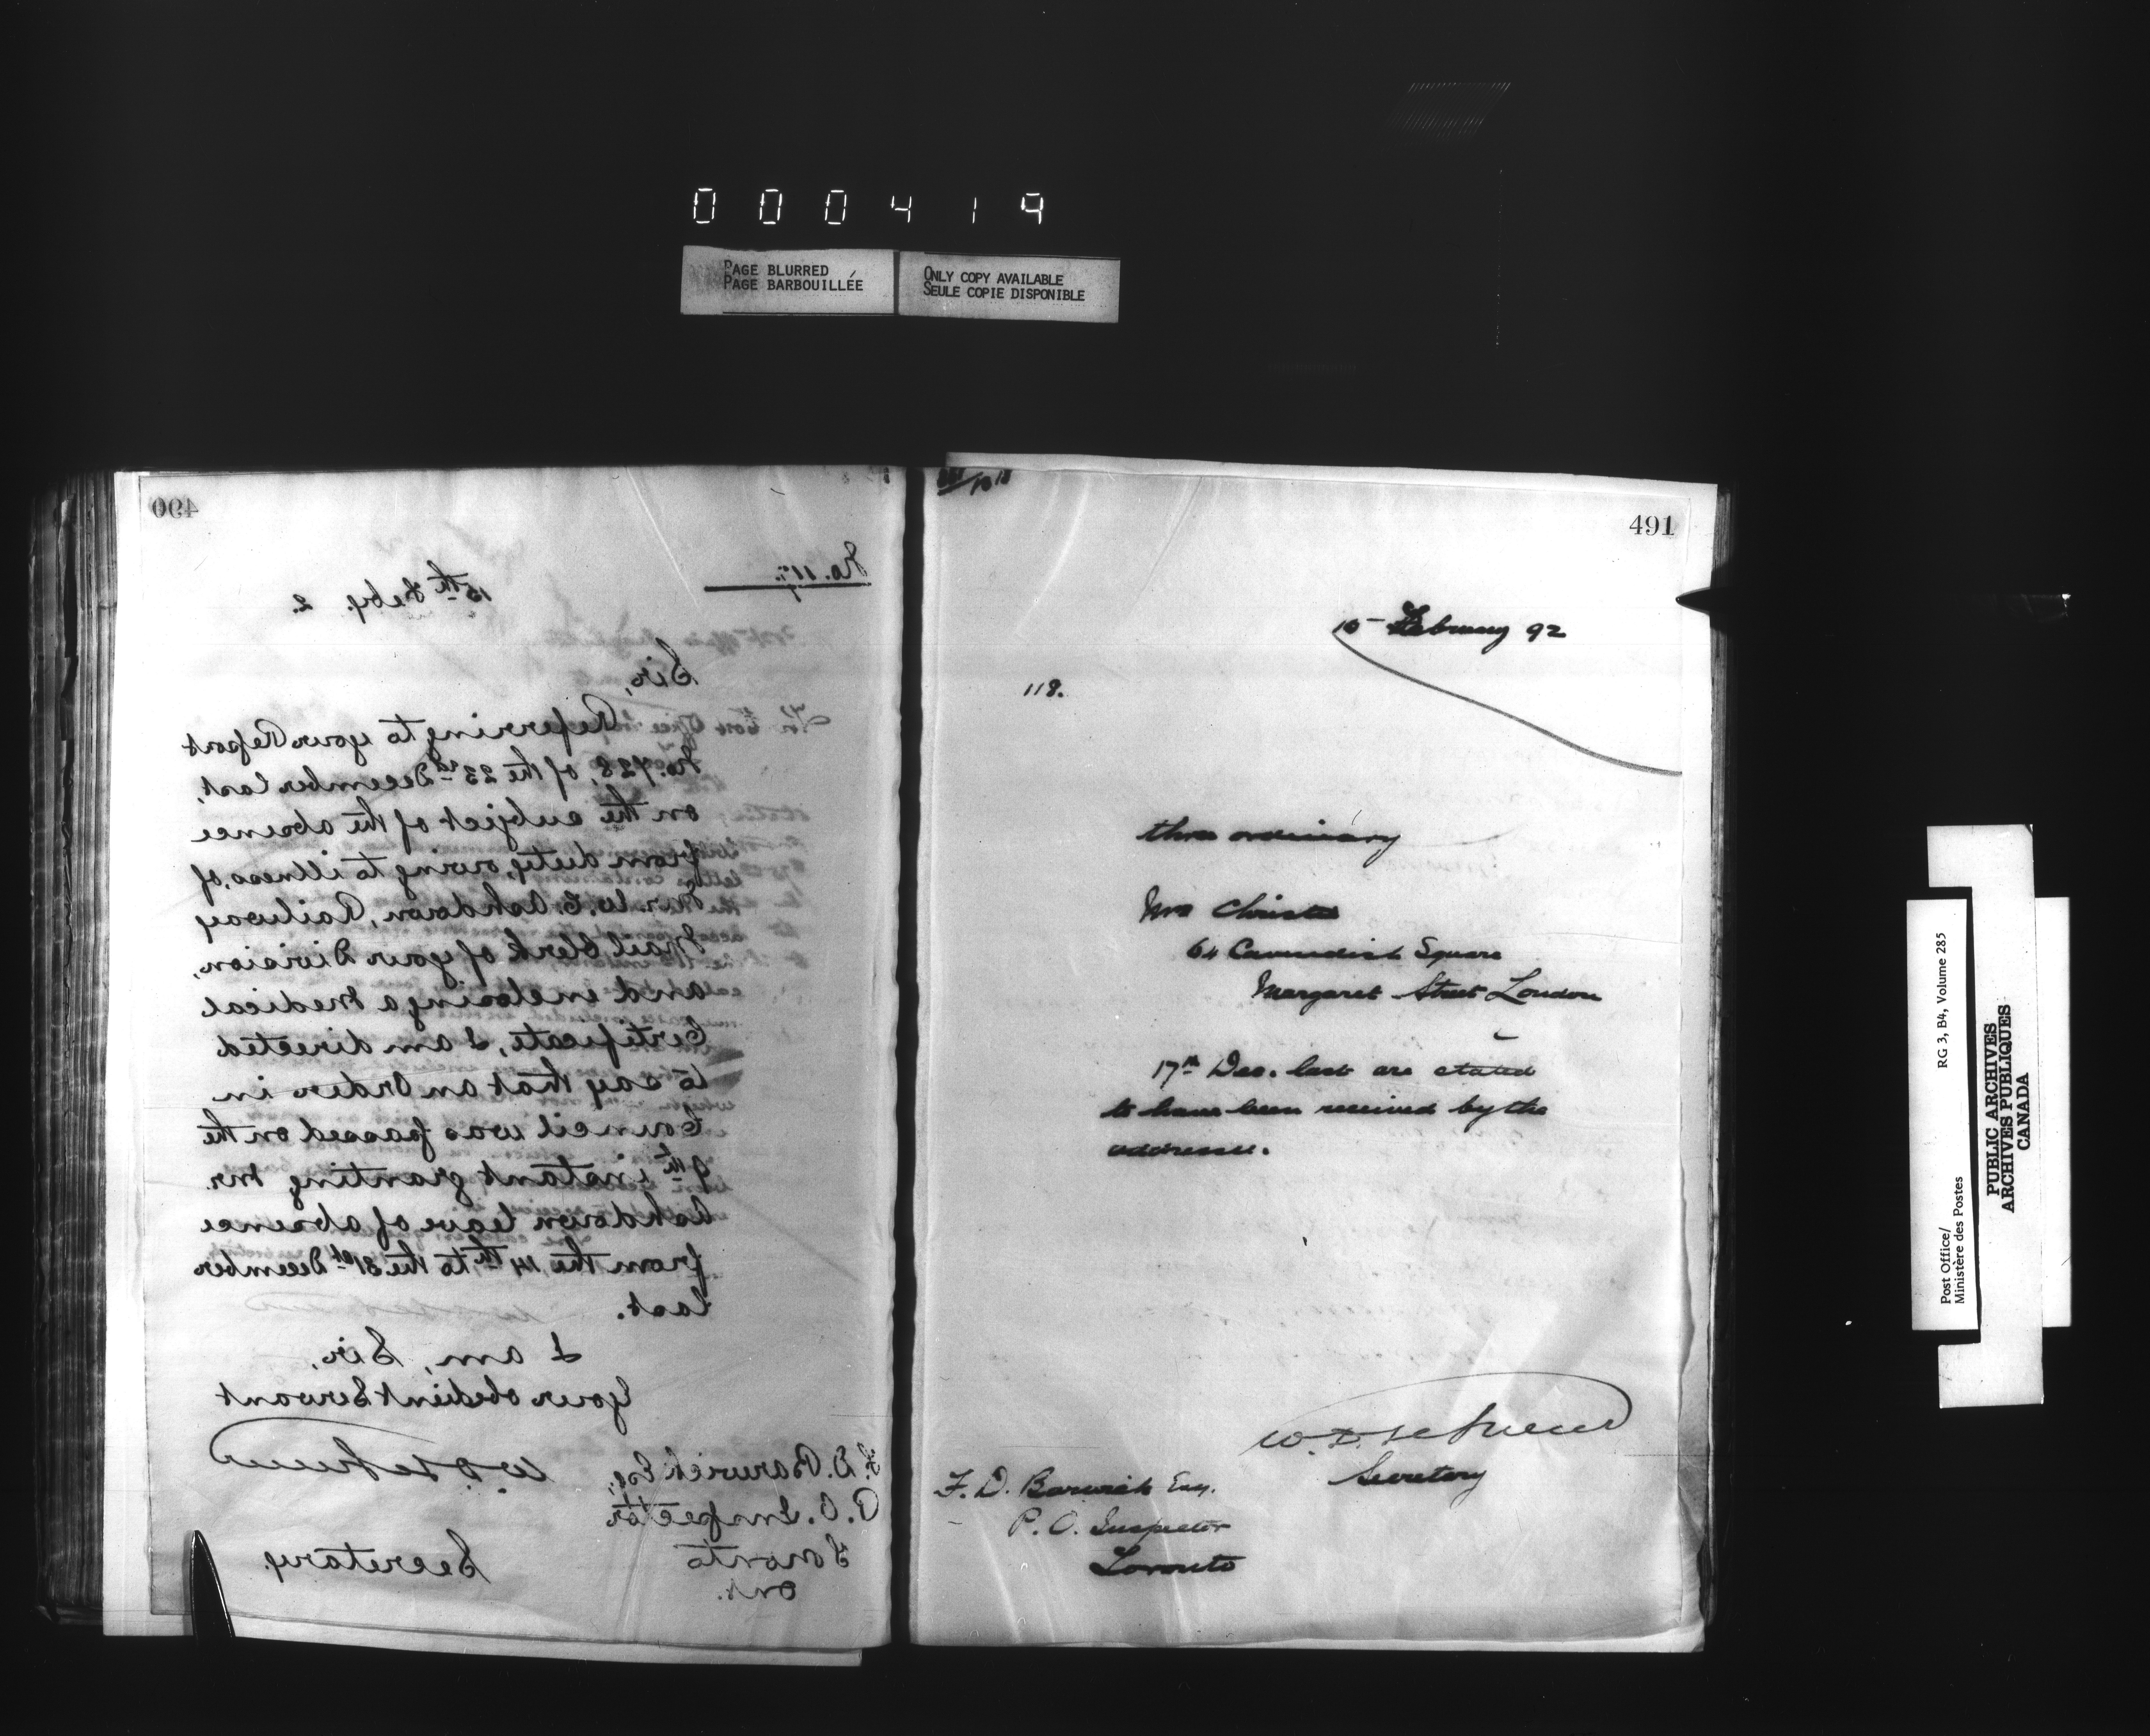 000419
PAGE BLURRED
PAGE BARBOUILLÉE
ONLY COPY AVAILABLE
SEULE COPIE DISPONIBLE
490
No. 117.
15th Feby. 2.
Sir,
Referring to your Report
No. 728, of the 23rd December last,
on the subject of the absence
from duty, owing to illness, of
Mr. W. E. Ashdown, Railway
Mail Clerk of your Division,
and enclosing a Medical
Certificate, I am directed
to say that an Order in
Council was passed on the
9th instant granting Mr.
Ashdown leave of absence
from the 14th to the 31st December
last.
I am, Sir,
Your obedient Servant
W. D. LeSueur
Secretary.
F. D. Barwick Esq.,
P. O. Inspector
Toronto
Ont.
491
15 February 92
118.
three ordinary
Mrs Christie
64 Cavendish Square
Margaret Street London
17th Dec. last are stated
to have been received by the
addressee.
W. D. LeSueur
Secretary
F. D. Barwick Esq.
P. O. Inspector
Toronto
Post Office/
Ministère des Postes
RG 3, B4, Volume 285
PUBLIC ARCHIVES
ARCHIVES PUBLIQUES
CANADA